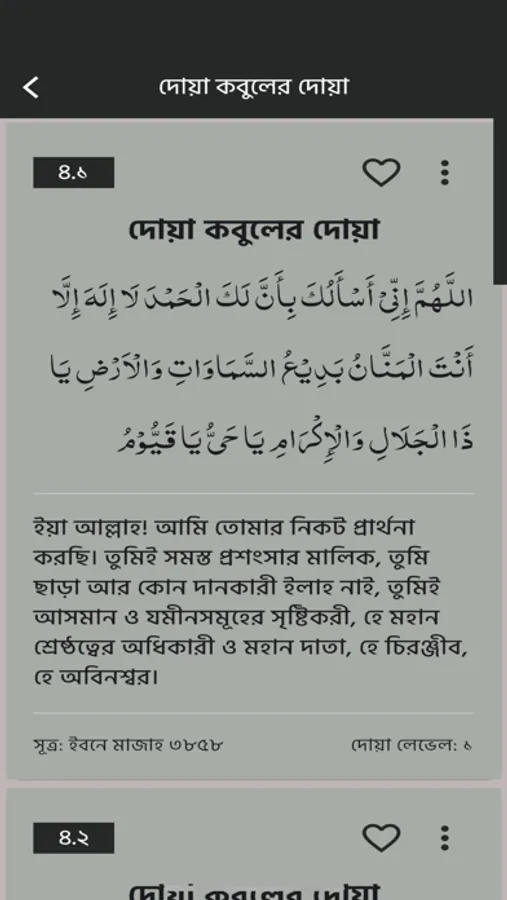 দোয়া কবুলের দোয়া
৪.১
দোয়া কবুলের দোয়া
اللَّهُمَّ إِنِّيْ أَسْأَلُكَ بِأَنَّ لَكَ الْحَمْدَ لَا إِلَهَ إِلَّا
أَنْتَ الْمَنَّانُ بَدِيْعُ السَّمَاوَاتِ وَالْاَرْضِ يَا
ذَا الْجَلَالِ وَالْإِكْرَامِ يَا حَيُّ يَا قَيُّوْمُ
ইয়া আল্লাহ! আমি তোমার নিকট প্রার্থনা
করছি। তুমিই সমস্ত প্রশংসার মালিক, তুমি
ছাড়া আর কোন দানকারী ইলাহ নাই, তুমিই
আসমান ও যমীনসমূহের সৃষ্টিকরী, হে মহান
শ্রেষ্ঠত্বের অধিকারী ও মহান দাতা, হে চিরঞ্জীব,
হে অবিনশ্বর।
সূত্র: ইবনে মাজাহ ৩৮৫৮
দোয়া লেভেল: ১
৪.২
দোয়া কবুলের দোয়া